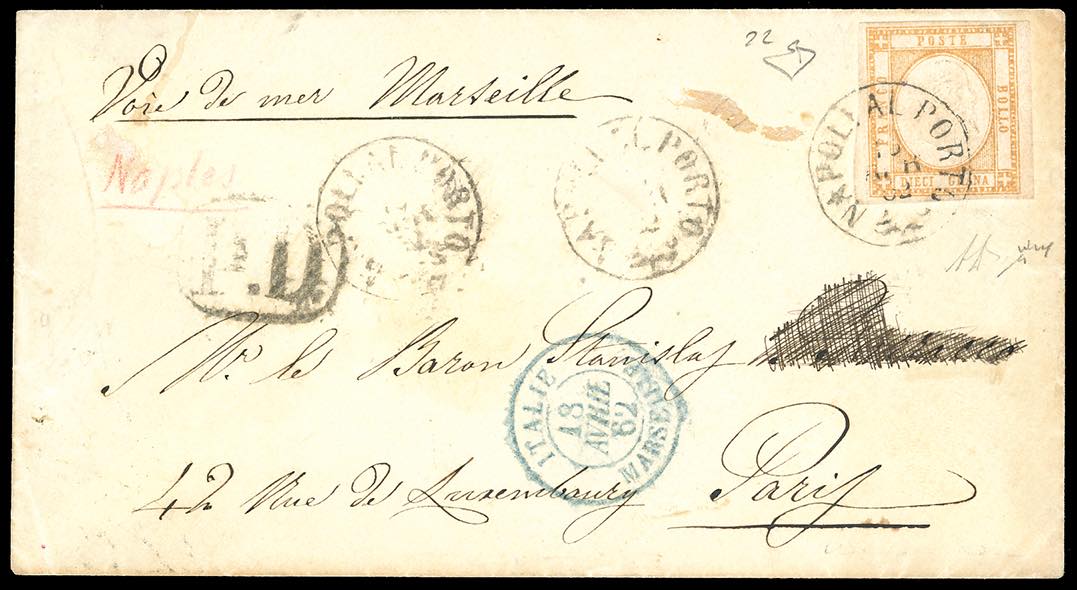 Voie de mer Marseille
22
POSTE
FRANCO
BOLLO
DIECI GRANA
NAPOLI AL PORTO
APR
62
Naples
NAPOLI AL PORTO
NAPOLI AL PORTO
P.D.
Mr. le Baron Stanislas
ITALIE
MARSEILLE
18
AVRIL
62
42 Rue de Luxembourg Paris